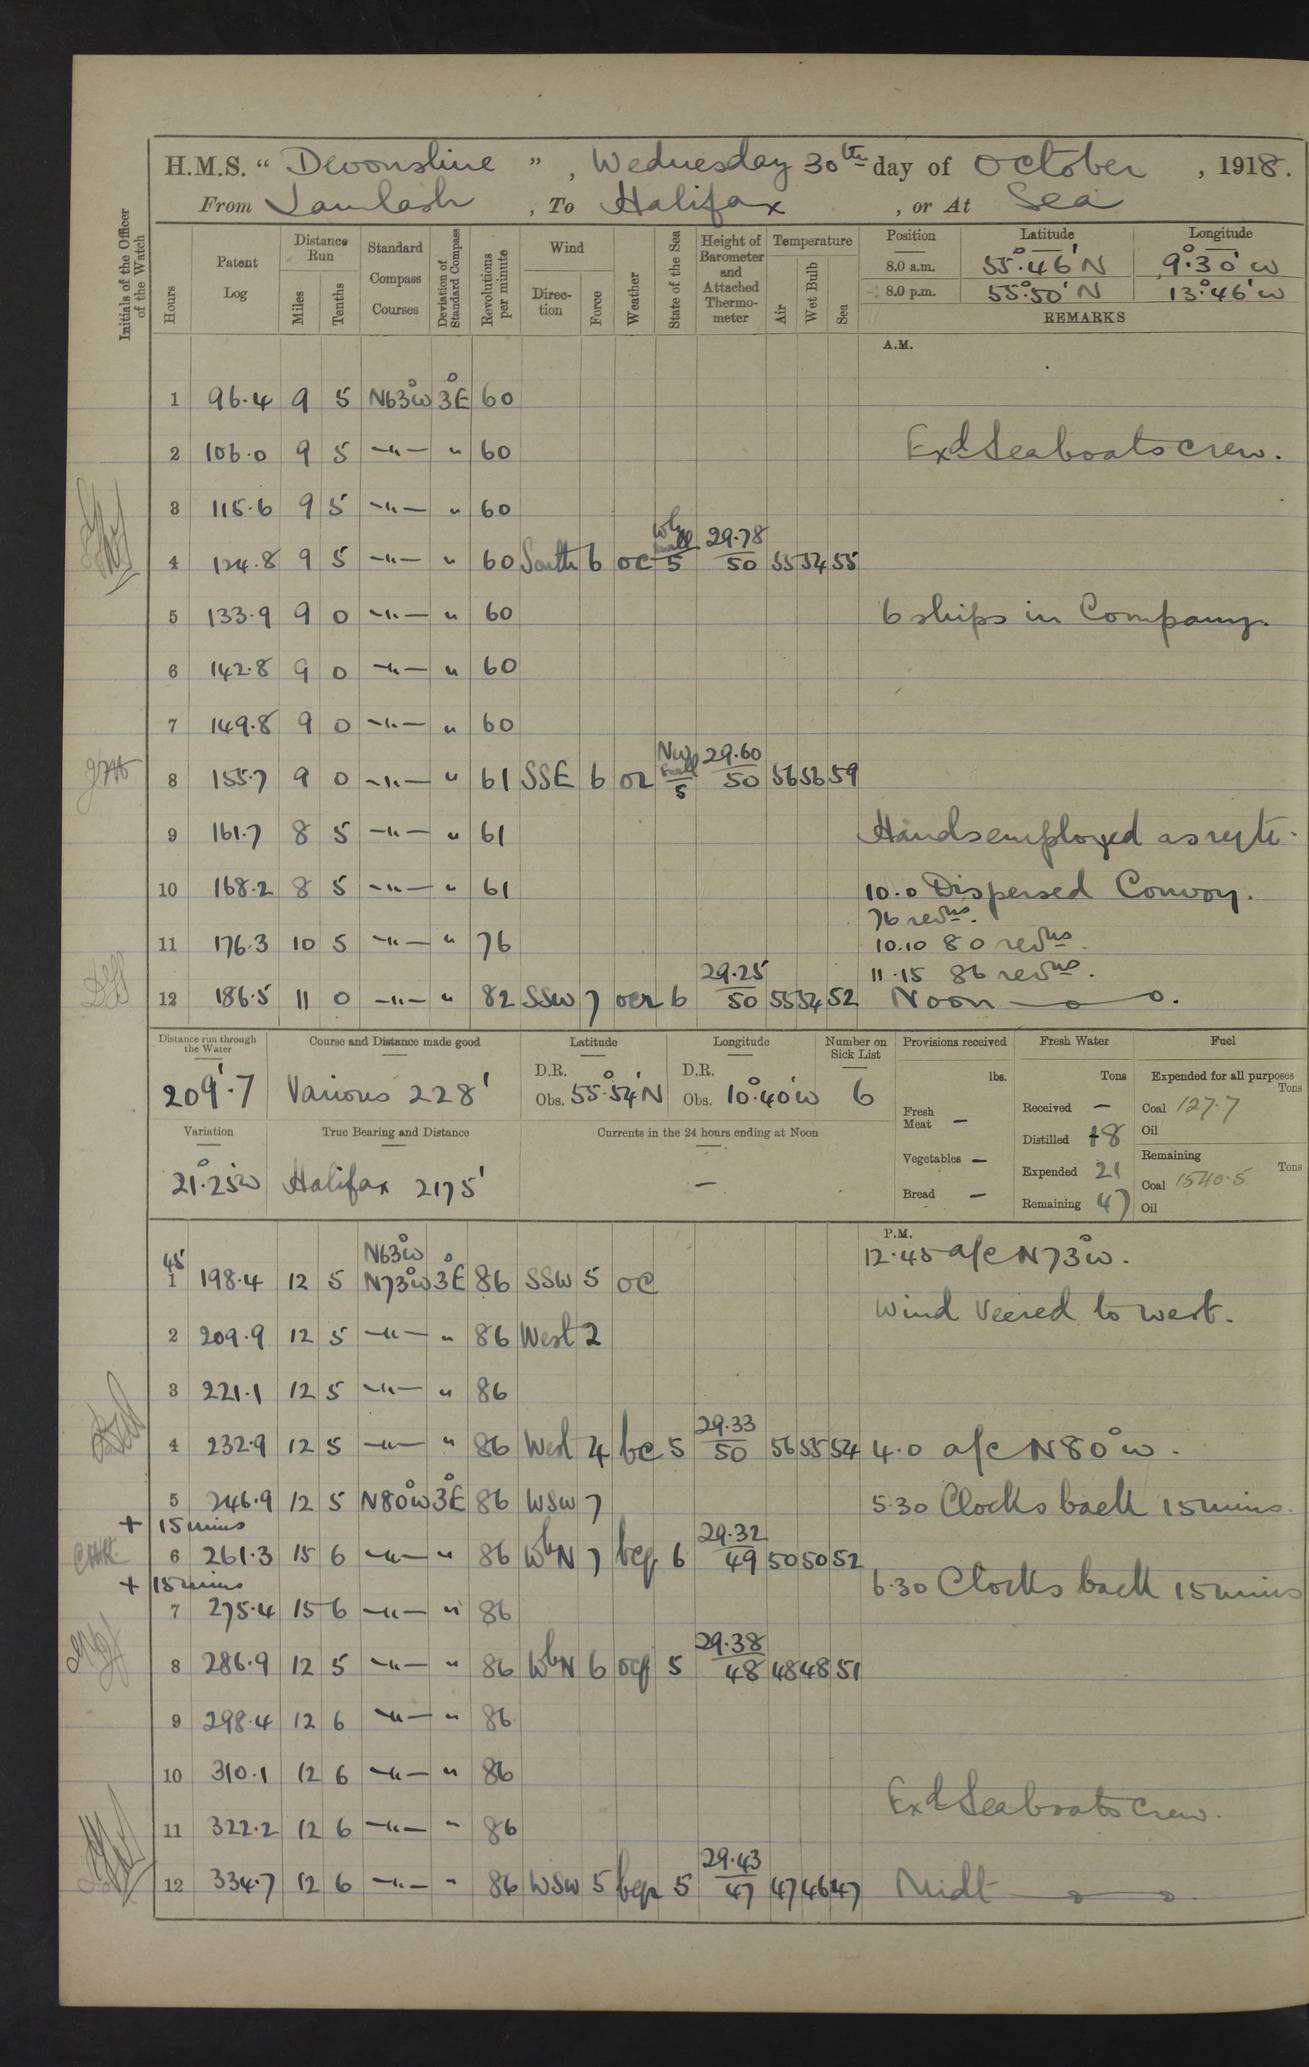 H.M.S. “ Devonshire ”, Wednesday 30th day of October , 1918.
From Lamlash , To Halifax , or At Sea
Initials of the Officer of the Watch
Hours
Patent Log
Distance Run
Miles
Tenths
Standard Compass Courses
Deviation of Standard Compass
Revolutions per minute
Wind
Direction
Force
Weather
State of the Sea
Height of Barometer and Attached Thermometer
Temperature
Air
Wet Bulb
Sea
Position Latitude Longitude
8.0 a.m. 55°.46'N 9°.30'W
8.0 p.m. 55°.50'N 13°.46'W
REMARKS
A.M.
1 96.4 9 5 N63°W 3°E 60
2 106.0 9 5 -"- " 60 Exd Seaboats crew.
3 115.6 9 5 -"- " 60
4 124.8 9 5 -"- " 60 South 6 oc 5 29.78/50 55 54 55
5 133.9 9 0 -"- " 60 6 ships in Company.
6 142.8 9 0 -"- " 60
7 149.8 9 0 -"- " 60
8 155.7 9 0 -"- " 61 SSE 6 or NW swell/5 29.60/50 56 56 59
9 161.7 8 5 -"- " 61 Hands employed as reqte.
10 168.2 8 5 -"- " 61 10.0 Dispersed Convoy.
76 revns.
11 176.3 10 5 -"- " 76 10.10 80 revns.
11.15 86 revns.
12 186.5 11 0 -"- " 82 SSW 7 ocr 6 29.25/50 55 54 52 Noon
Distance run through the Water
209'.7
Course and Distance made good
Various 228'
Latitude
D.R.
Obs. 55°.54'N
Longitude
D.R.
Obs. 10°.40'W
Number on Sick List
6
Variation
21°.25'W
True Bearing and Distance
Halifax 2175'
Currents in the 24 hours ending at Noon
—
Provisions received
lbs.
Fresh Meat —
Vegetables —
Bread —
Fresh Water
Tons
Received —
Distilled 18
Expended 21
Remaining 47
Fuel
Expended for all purposes
Tons
Coal 127.7
Oil
Remaining
Tons
Coal 1540.5
Oil
P.M.
N63°W 12.45 a/c N73°W.
45
1 198.4 12 5 N73°W 3°E 86 SSW 5 oc
Wind Veered to West.
2 209.9 12 5 -"- " 86 West 2
3 221.1 12 5 -"- " 86
4 232.9 12 5 -"- " 86 West 4 bc 5 29.33/50 56 55 54 4.0 a/c N80°W.
5 246.9 12 5 N80°W 3°E 86 WSW 7 5.30 Clocks back 15 mins.
+ 15 mins
6 261.3 15 6 -"- " 86 WbN 7 bcq 6 29.32/49 50 50 52
+ 15 mins 6.30 Clocks back 15 mins
7 275.4 15 6 -"- " 86
8 286.9 12 5 -"- " 86 WbN 6 ocq 5 29.38/48 48 48 51
9 298.4 12 6 -"- " 86
10 310.1 12 6 -"- " 86
Exd Seaboats crew.
11 322.2 12 6 -"- " 86
12 334.7 12 6 -"- " 86 WSW 5 bcp 5 29.43/47 47 46 47 Midt